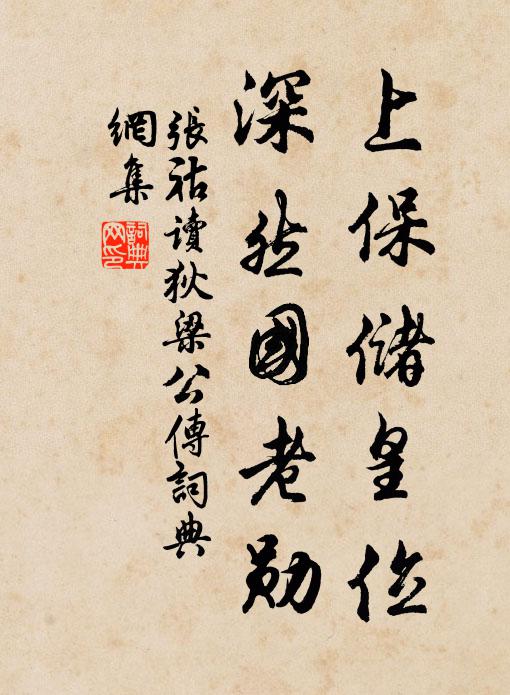 上保儲皇位
深然國老勋
張祜讀狄梁公傳詞典
網集
詞典网印